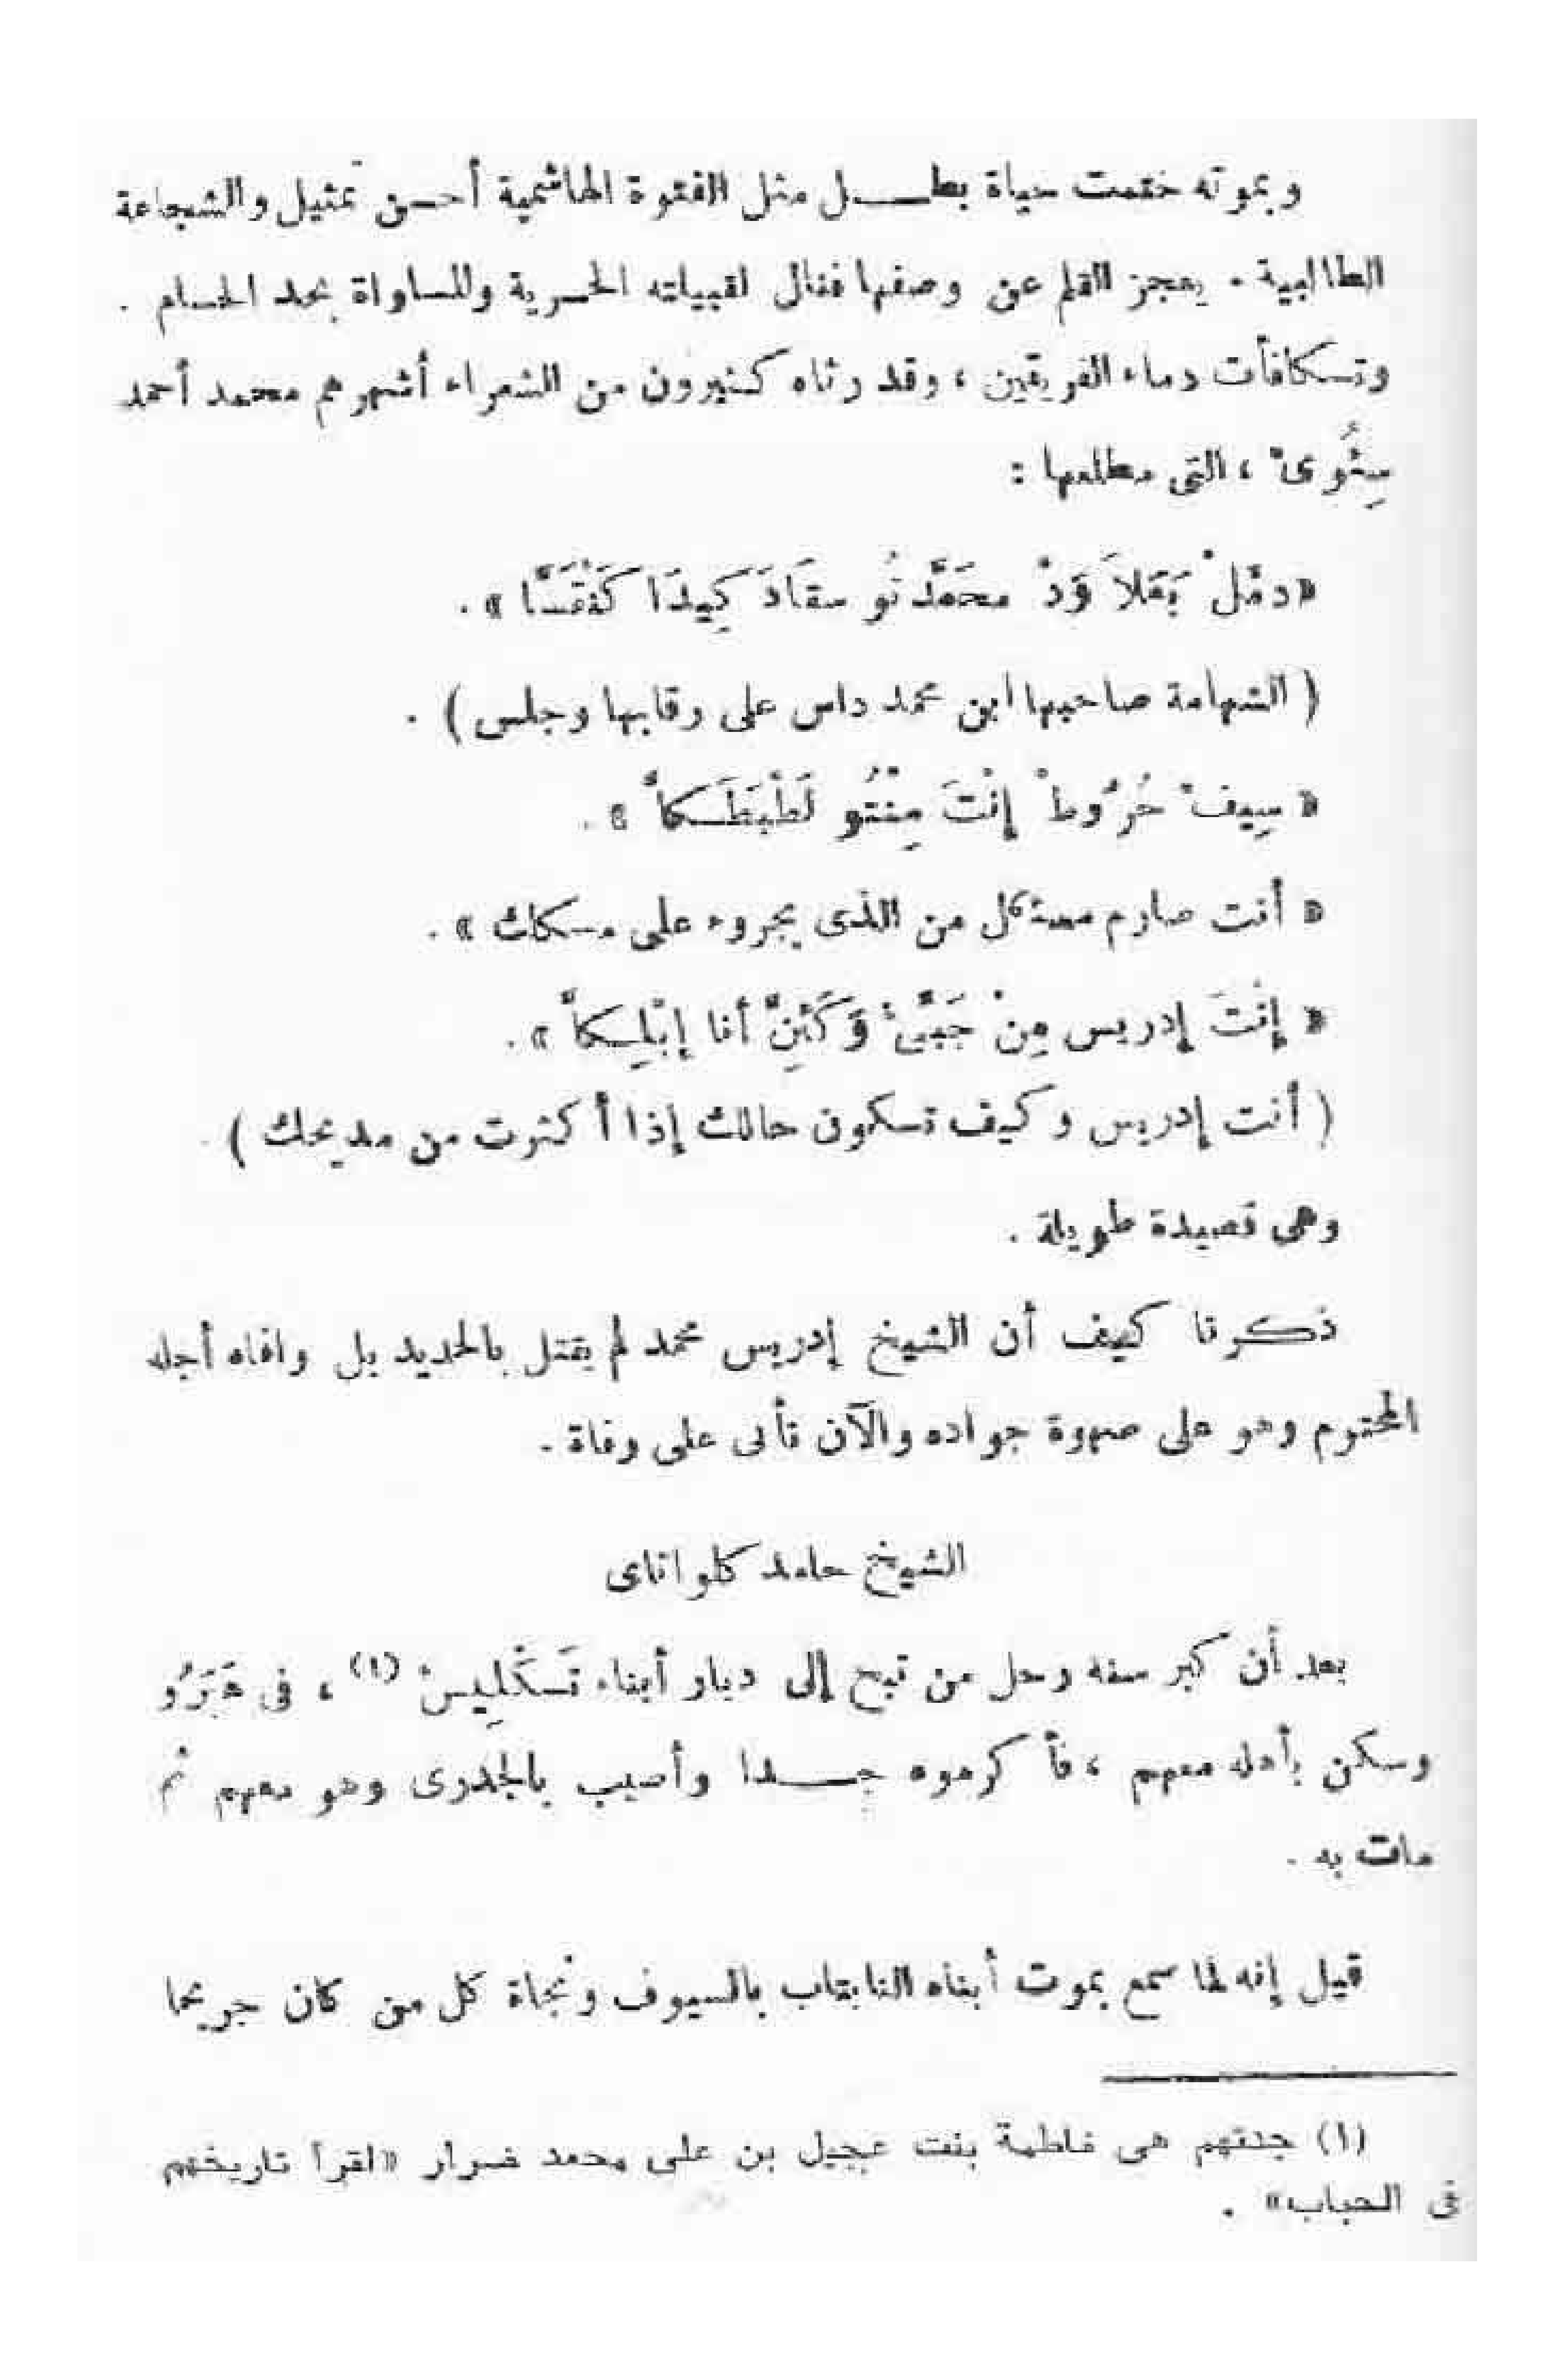 وبموته ختمت حياة بطل مثل الفتوة الهاشمية أحسن تمثيل والشجاعة
الطالبية . يعجز القلم عن وصفها فنال لقبيلته الحرية والمساواة بحد الحسام .
وتكافأت دماء الفريقين ، وقد رثاه كثيرون من الشعراء أشهرهم محمد أحمد
، التى مطلعها :
( الشهامة صاحبها ابن محمد داس على رقابها وجلس ) .
« أنت صارم من الذى يجروء على مسكك » .
« إِنْتَ إدريس مِنْ أنا » .
( أنت إدريس وكيف تكون حالك إذا أكثرت من مديحك ) .
وهى قصيدة طويلة .
ذكرنا كيف أن الشيخ إدريس محمد لم يقتل بالحديد بل وافاه أجله
المحتوم وهو على صهوة جواده والآن تأتى على وفاة .
الشيخ حامد كلواناى
بعد أن كبر سنه رحل من قبح إلى ديار أبناء (١) ، فى
وسكن بأهله معهم ، فأكرموه جدا وأصيب بالجدرى وهو معهم ثم
مات به .
قيل إنه لما سمع بموت أبناء النابتاب بالسيوف ونجاة كل من كان جريحا
(١) جدتهم هى فاطمة بنت عجيل بن على محمد ضرار «اقرأ تاريخهم
فى الحباب» .